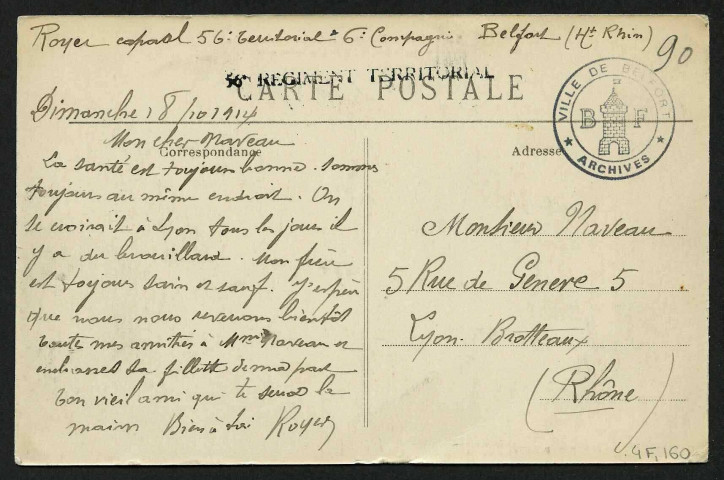 Royer caporal 56e territorial 6e Compagnie Belfort (Ht Rhin)
90
56e REGIMENT TERRITORIAL
CARTE POSTALE
VILLE DE BELFORT
B F
★ ARCHIVES ★
Dimanche 18/10 1914
Correspondance
Adresse
Mon cher Naveau
La santé est toujours bonne. sommes
toujours au même endroit. On
se croirait à Lyon tous les jours il
y a du brouillard. Mon frère
est toujours sain et sauf. J'espère
que nous nous reverrons bientôt
toutes mes amitiés à Mme Naveau et
embrasses ta fillette de ma part
ton vieil ami qui te serre la
main Bien à toi Royer
Monsieur Naveau
5 Rue de Geneve 5
Lyon. Brotteaux
(Rhône)
4F,160